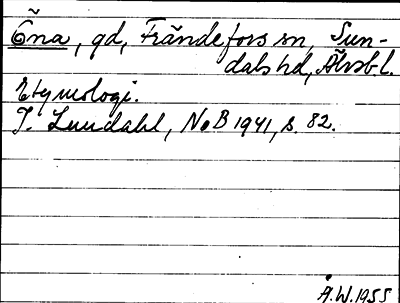 Õna, gd, Frändefors sn, Sun-
dals hd, Älvsb. l.
Etymologi.
I. Lundahl, NoB 1941, s. 82.
Å.W. 1955